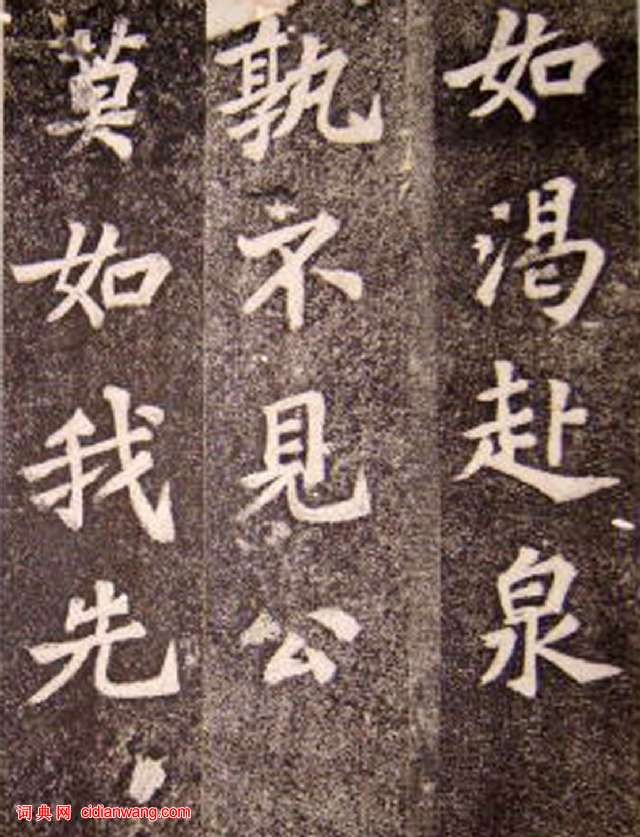 如渴赴泉
孰不見公
莫如我先
词典网 cidianwang.com